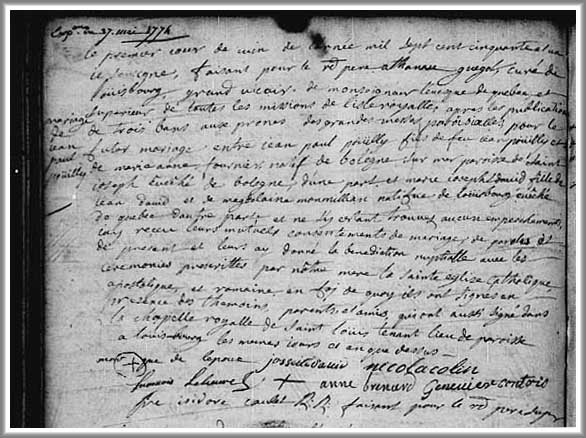 Exp.on du 27. mai 1774
le premier jour de juin de lannée mil sept cent cinquante et un
je soussigné, faisant pour le rd pere athanase guegot, curé de
louisbourg grand vicaire de monseigneur leveque de quebec et
superieur de toutes les missions de lisle royalle, apres les publications
mariage de trois bans aux prones des grandes messes paroissialles pour le
de jean paul poüilly
futur mariage entre jean paul poüilly fils de feu jean poüilly et
de marie anne fournier natif de bologne sur mer paroisse de saint
joseph evêché de bologne, d'une part et marie joseph david fille de
jean david et de magdelaine monmillian natifue de louisbourg evêché
de quebec dautre part, et ne s'y estant trouvé aucun empechement,
jay receu leurs mutuels consentements de mariage, de paroles de
present et leurs ay donné la benediction nuptialle avec les
ceremonies prescrittes par nôtre mere la sainte eglise catholique
apostolique, et romaine, en foy de quoy ils ont signes en
presence des themoins, parents et amis, qui ont aussi signé dans
la chapelle royalle de saint louis tenant lieu de paroisse
a louisbourg les memes jours et an que dessus
marque de lepoux josephe david nicola colin
+ anne Genevieve
fre isidore caulet R.R. faisant pour le rd pere